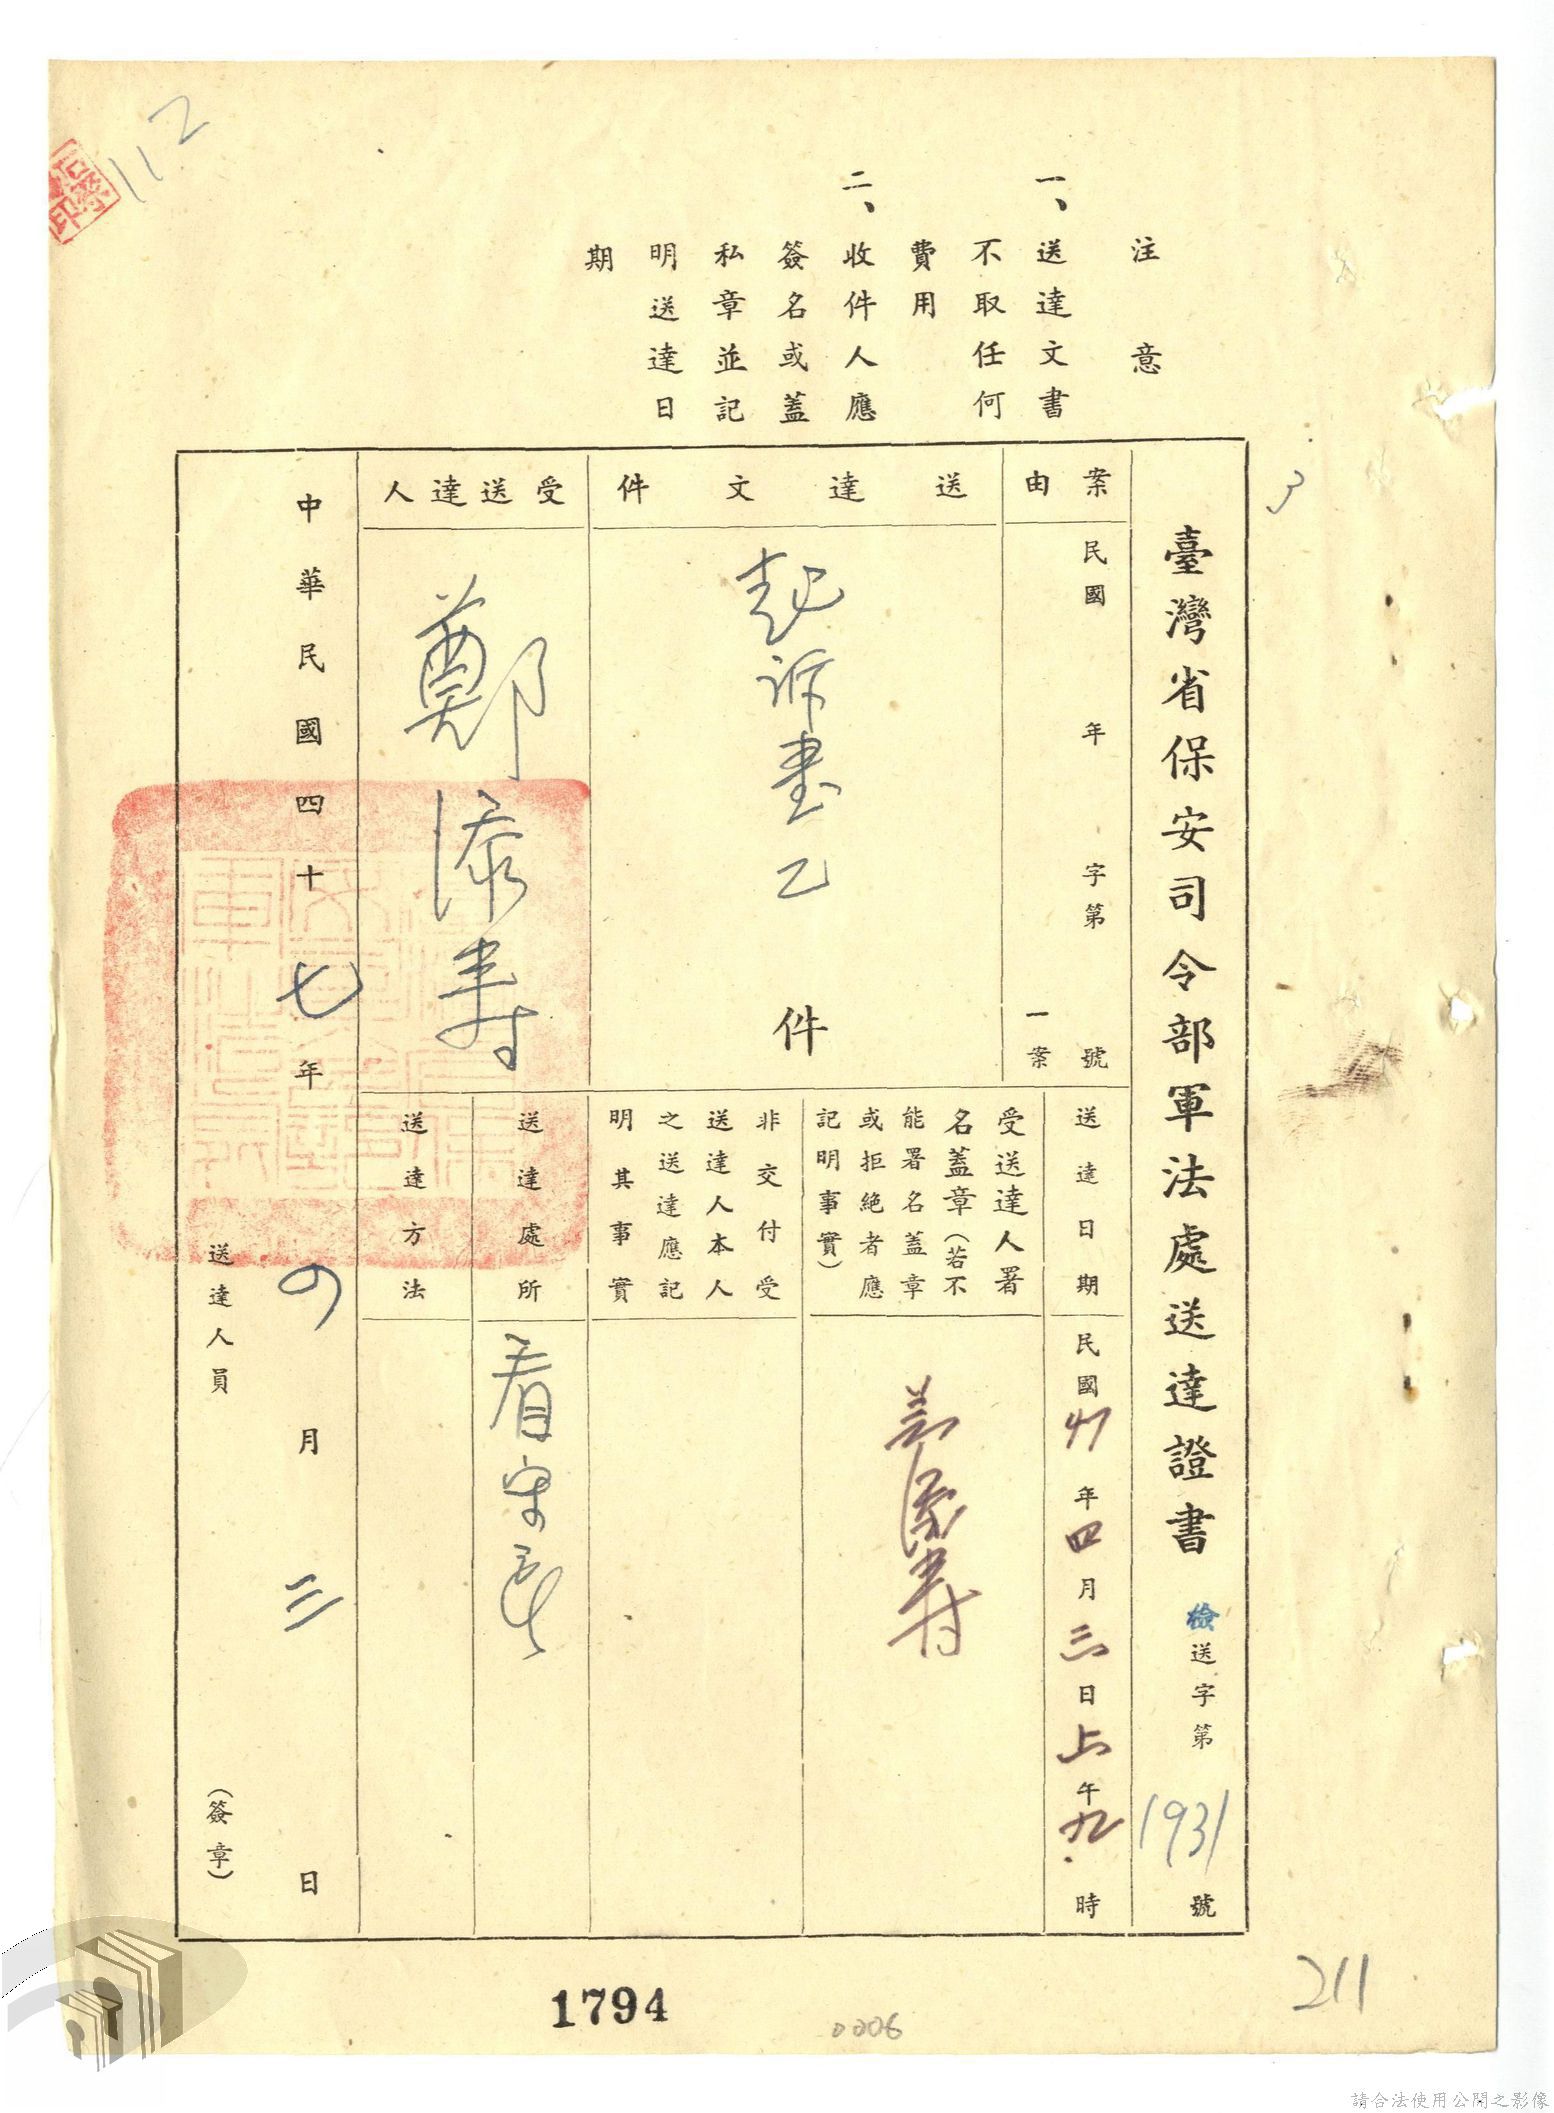 注意
一、送達文書
不取任何
費用
二、收件人應
簽名或蓋
私章並記
明送達日
期
臺灣省保安司令部軍法處送達證書 檢送字第1931號
案由
民國 年 字第 號
一案
送達文件
起訴書乙 件
受送達人
鄭添壽
送達日期
民國47年四月三日上午九時
受送達人署
名蓋章(若不
能署名蓋章
或拒絕者應
記明事實)
非交付受
送達人本人
之送達應記
明其事實
送達處所
看守所
送達方法
中華民國四十七年四月三日
送達人員 (簽章)
112
3
211
1794
0006
請合法使用公開之影像